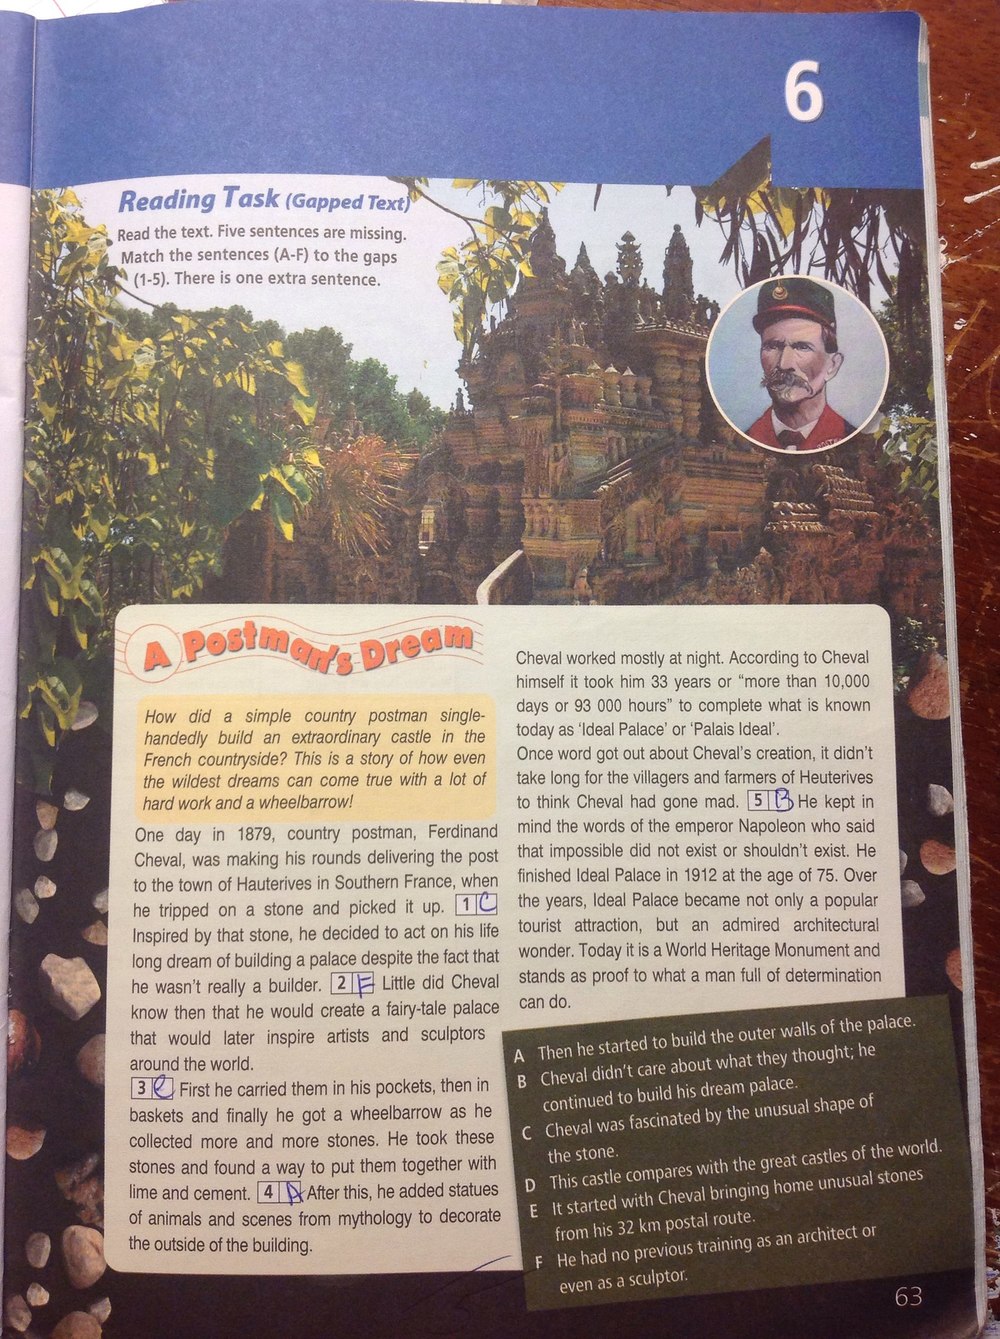 6
Reading Task (Gapped Text)
Read the text. Five sentences are missing.
Match the sentences (A-F) to the gaps
(1-5). There is one extra sentence.
A Postman's Dream
How did a simple country postman single-
handedly build an extraordinary castle in the
French countryside? This is a story of how even
the wildest dreams can come true with a lot of
hard work and a wheelbarrow!
One day in 1879, country postman, Ferdinand
Cheval, was making his rounds delivering the post
to the town of Hauterives in Southern France, when
he tripped on a stone and picked it up. 1 C
Inspired by that stone, he decided to act on his life
long dream of building a palace despite the fact that
he wasn't really a builder. 2 F Little did Cheval
know then that he would create a fairy-tale palace
that would later inspire artists and sculptors
around the world.
3 e First he carried them in his pockets, then in
baskets and finally he got a wheelbarrow as he
collected more and more stones. He took these
stones and found a way to put them together with
lime and cement. 4 A After this, he added statues
of animals and scenes from mythology to decorate
the outside of the building.
Cheval worked mostly at night. According to Cheval
himself it took him 33 years or “more than 10,000
days or 93 000 hours” to complete what is known
today as ‘Ideal Palace’ or ‘Palais Ideal’.
Once word got out about Cheval's creation, it didn't
take long for the villagers and farmers of Heuterives
to think Cheval had gone mad. 5 B He kept in
mind the words of the emperor Napoleon who said
that impossible did not exist or shouldn't exist. He
finished Ideal Palace in 1912 at the age of 75. Over
the years, Ideal Palace became not only a popular
tourist attraction, but an admired architectural
wonder. Today it is a World Heritage Monument and
stands as proof to what a man full of determination
can do.
A Then he started to build the outer walls of the palace.
B Cheval didn't care about what they thought; he
continued to build his dream palace.
C Cheval was fascinated by the unusual shape of
the stone.
D This castle compares with the great castles of the world.
E It started with Cheval bringing home unusual stones
from his 32 km postal route.
F He had no previous training as an architect or
even as a sculptor.
63